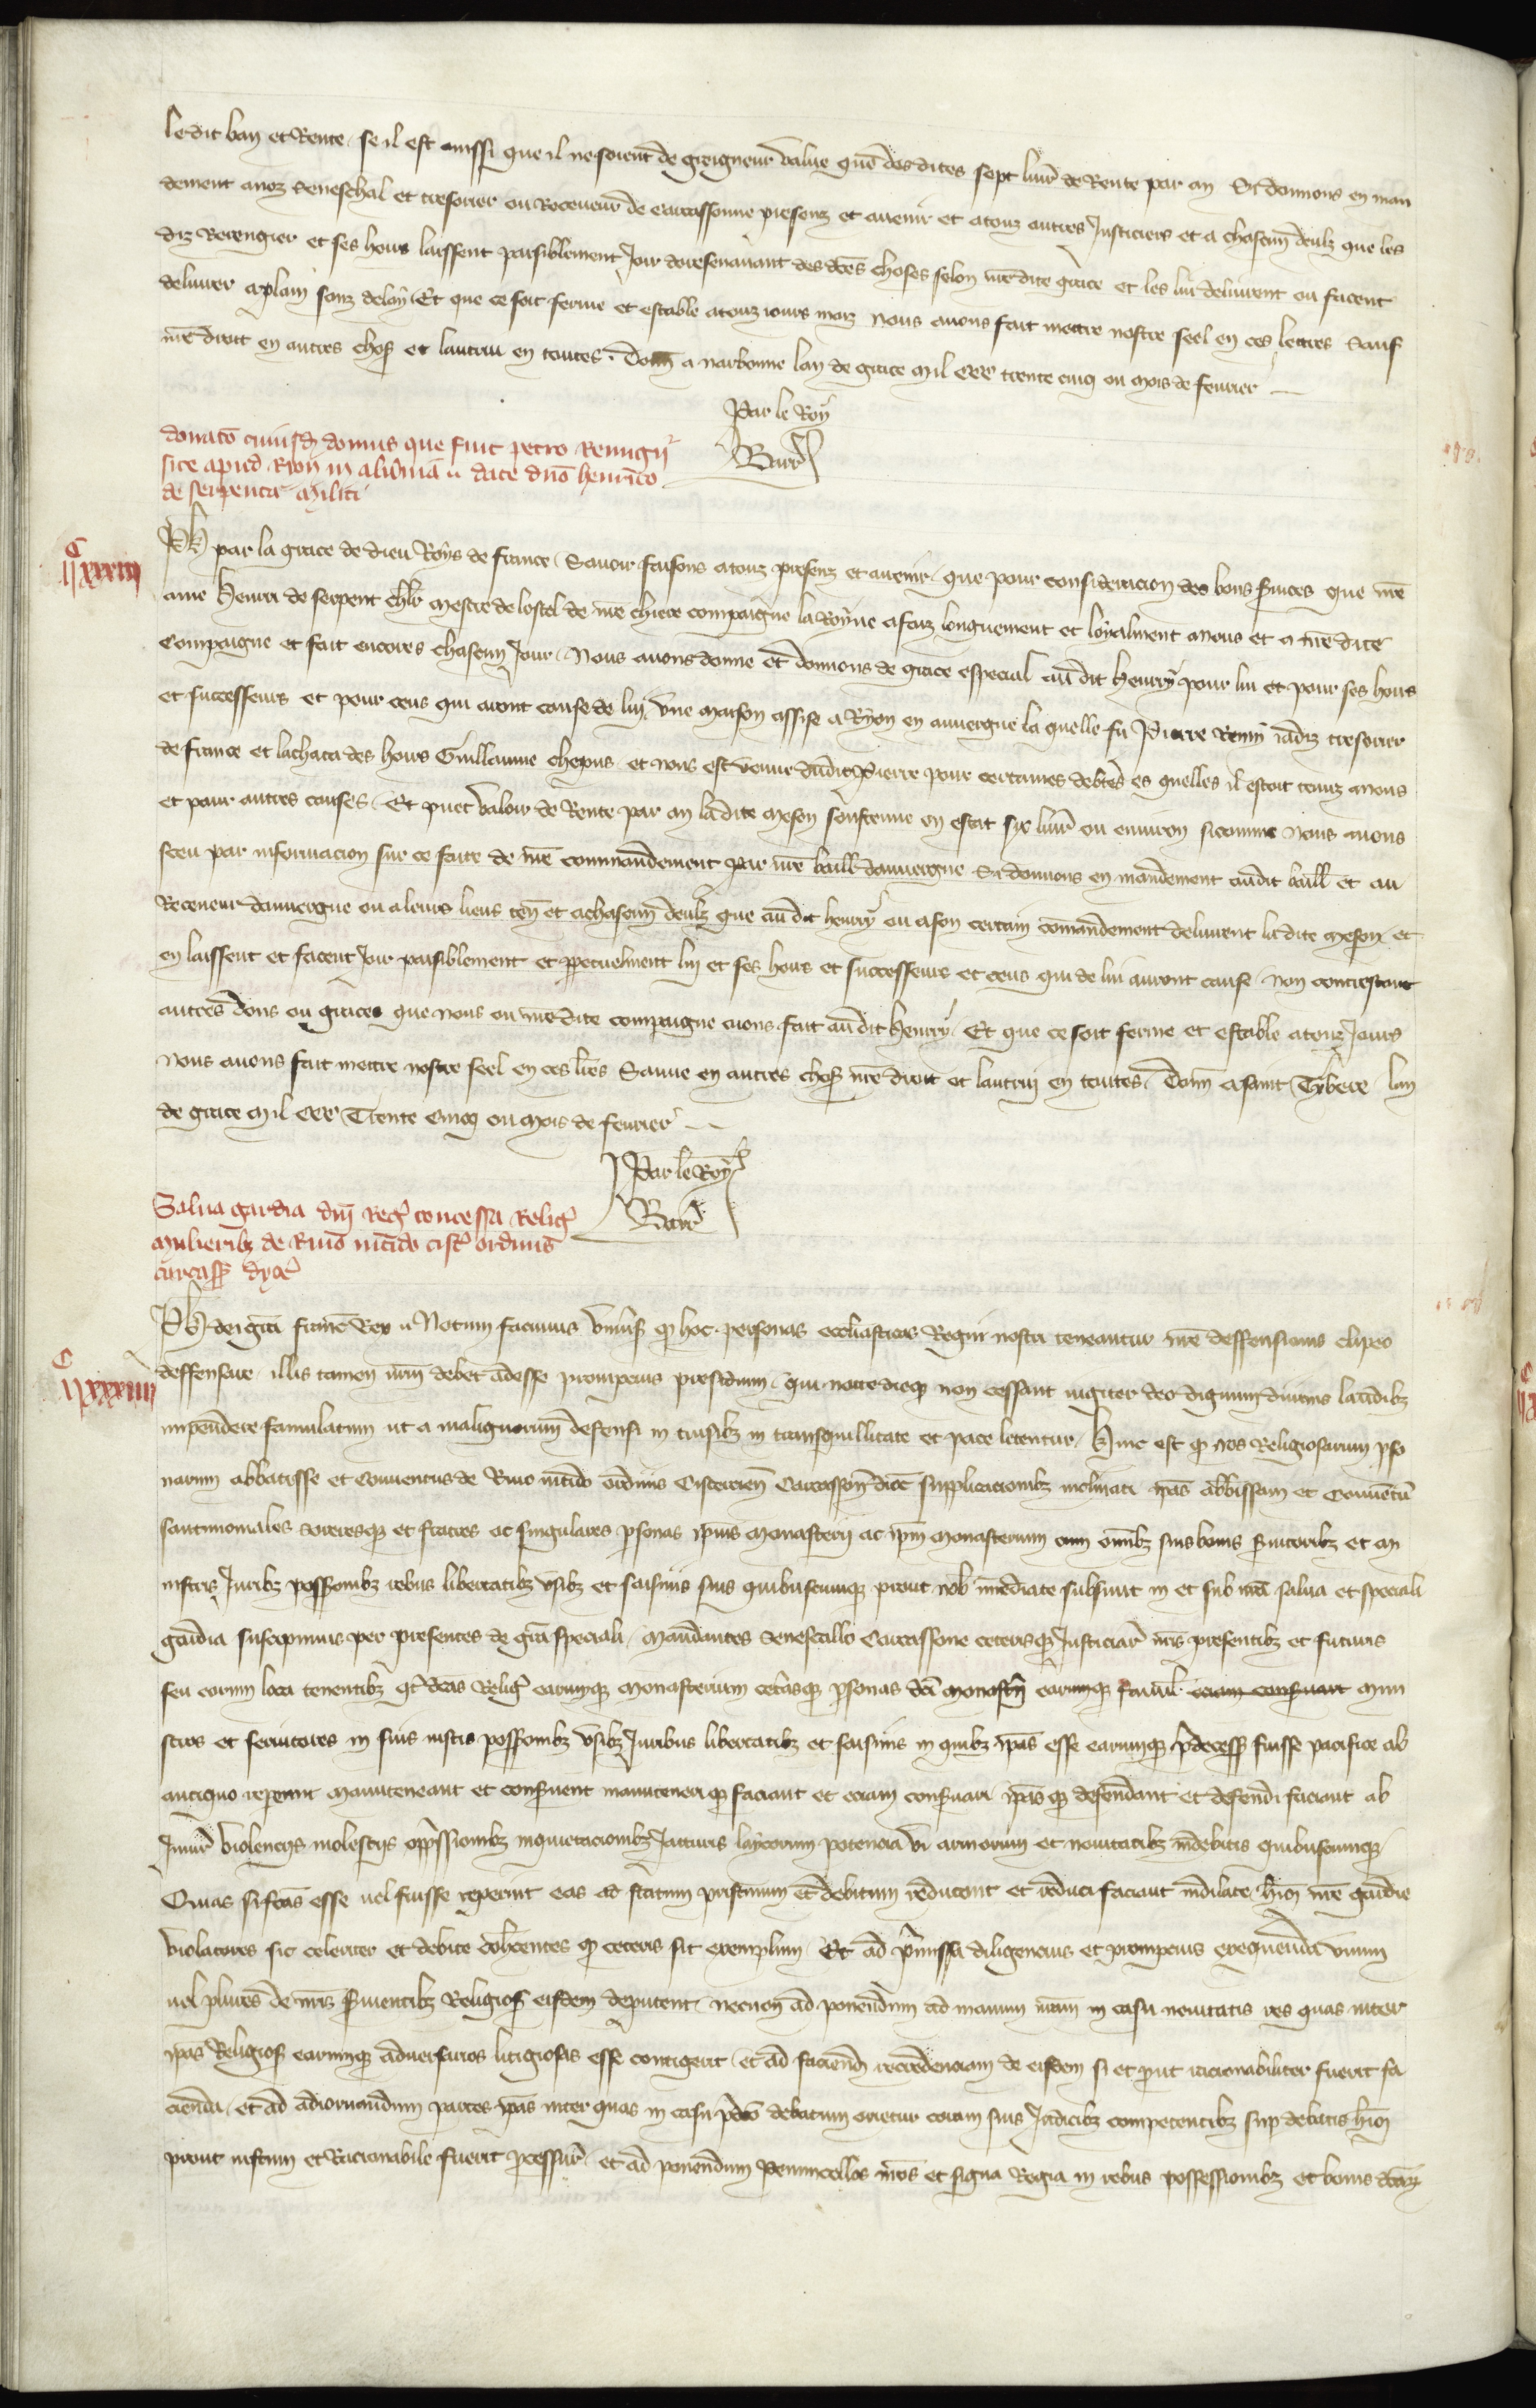 ledit ban et Rente se il est aussi que il ne soient de greigneur value que des dites sept livr̄ de Rente par an Si donnons en man
dement a noz Seneschal et tresorier ou Receveur de Carcassonne presenz et avenir et a touz autres Justiciers et a chascun deulz que les
diz Berengier et ses hoirs laissent paisiblement Joir doresenavant des dc̄es choses selon nr̄e dite grace et les lui delivrent ou facent
delivrer a plain sanz delay Et que ce soit ferme et estable a touz iours mais nous avons fait mettre nostre seel en ces lettres Sauf
nr̄e droit en autres chos̄ et lautrui en toutes. Donn̄ a narbonne lan de grace mil CCC trente cinq ou mois de fevrier
Par le Roy
Barr̄
donatō cuiusd̄ domus que fuit petro Remigii
site apud Riom in aluernia date dn̄o henrico
de serpente militi
C
II xxxiii
Ph par la grace de dieu Roys de france Savoir faisons a touz presenz et avenir que pour consideracion des bons s̄vices que nr̄e
ame Henri de serpent chlr̄ mestre de lostel de nr̄e chiere compaigne la Royne a faiz longuement et loyalment a nous et a nr̄e dite
Compaigne et fait encores chascun Jour Nous avons donne et donnons de grace especial au dit Henry pour lui et pour ses hoirs
et successeurs et pour ceus qui avont cause de lui une maison assise a Ryon en auvergne la quelle fu Pierre Remy iadiz tresorier
de france et lachata des hoirs Guillaume chepus et nous est venue dudit Pierre pour certaines debtes es quelles il estoit tenuz a nous
et pour autres causes Et puet valoir de Rente par an ladite meson soustenue en estat six livr̄ ou environ sicomme nous avons
sceu par informacion sur ce faite de nr̄e commandement par nr̄e baill̄ dauvergne Si donnons en mandement audit baill̄ et au
Receveur dauvergne ou a leurs lieus ten̄ et a chascun deulz que au dit henry ou a son certain com̄andement delivrent la dite meson et
en laissent et facent Joir paisiblement et p̄petuelment lui et ses hoirs et successeurs et ceus qui de lui auront cause non contrestant
autres dons ou graces que nous ou nr̄e dite compaigne avons fait au dit Henry Et que ce soit ferme et estable a touz Jours
nous avons fait mettre nostre seel en ces lr̄es Sauve en autres chos̄ nr̄e droit et lautrui en toutes Donn̄ a saint Tybere lan
de grace mil CCC Trente Cinq ou mois de fevrier
Par le Roy
Barr̄
Salva gardia dn̄i Reḡ concessa Relig̃
mulieribꝫ de Rivo nitido cist̄ ordinis
carcass̄ dyoc̄
C
II xxxiiii
Ph dei gr̄a franc̄ Rex Notum facimus univ̄sis qd̄ hoc personas ecclesiasticas Regni nostri teneantur nr̄e deffensionis clipeo
deffensare illis tamen nr̄m debet adesse prompcius presidium qui nocte dieqꝫ non cessant iugiter deo dignum divinis laudibꝫ
impendere famulatum ut a malignorum defensi in cursibꝫ in tranquillitate et pace letentur Hinc est qd̄ nos Religiosarum p̄so
narum abbatisse et Conventus de Rivo nitido ordinis Cistercien̄ Carcasson̄ dioc̄ supplicacionibꝫ inclinati ip̄as abb̄issam et Conventū
sanctimoniales sororesqꝫ et fratres ac singulares p̄sonas ip̄ius monasterii ac ip̄m monasterium cum om̄ibꝫ suis bonis s̄vitoribꝫ et mi
nistris Juribꝫ poss̄ionibꝫ rebus libertatibꝫ usibꝫ et saisinis suis quibuscumqꝫ prout nob̄ im̄ediate subsunt in et sub nr̄a salva et speciali
gardia suscepimus per presentes de gr̄a speciali Mandantes Senescallo Carcassone ceterisqꝫ Justiciar̄ nr̄is presentibꝫ et futuris
seu eorum loca tenentibꝫ q̄t dc̄as Relig̃ earumqꝫ monasterium cet̄asqꝫ p̄sonas dc̄i monast̄ii earumqꝫ famil̄ minis
tros et servitores in suis iustis poss̄ionibꝫ usibꝫ Juribus libertatibꝫ et saisinis in quibꝫ ip̄as esse earumqꝫ p̄decess̄ fuisse pacifice ab
antiquo repererint manuteneant et cons̄vent manuteneriqꝫ faciant et eciam cons̄vari ip̄asqꝫ defendant et defendi faciant ab
Iniur̄ violenciis molestiis opp̄ssionibꝫ inquietacionibꝫ Jacturis laycorum potencia vi armorum et novitatibꝫ indebitis quibuscumqꝫ
Quas si fc̄as esse vel fuisse repererint eas ad statum pristinum et debitum reducant et reduci faciant indilate hui' nr̄e gardie
violatores sic celeriter et debite coh̄centes qd̄ ceteris sit exemplum Et ad p̄missa diligencius et prompcius exequenda unum
vel plures de nr̄is s̄vientibꝫ Religios̄ eisdem deputent necnon ad ponendum ad manum nr̄am in casu novitatis res quas inter
ip̄as Religios̄ earumqꝫ adversarios litigiosas esse contigerit et ad faciend̄ recredenciam de eisdem si et p̄ut racionabiliter fuerit fa
cienda et ad adiornandum partes ip̄as inter quas in casu p̄dc̄o debatum orietur coram suis Judicibꝫ competentibꝫ sup̄ debatis hui'
prout iustum et Racionabile fuerit p̄cessur̄ et ad ponendum Penuncellos nr̄os et signa Regia in rebus possessionibꝫ et bonis dc̄arꝫ